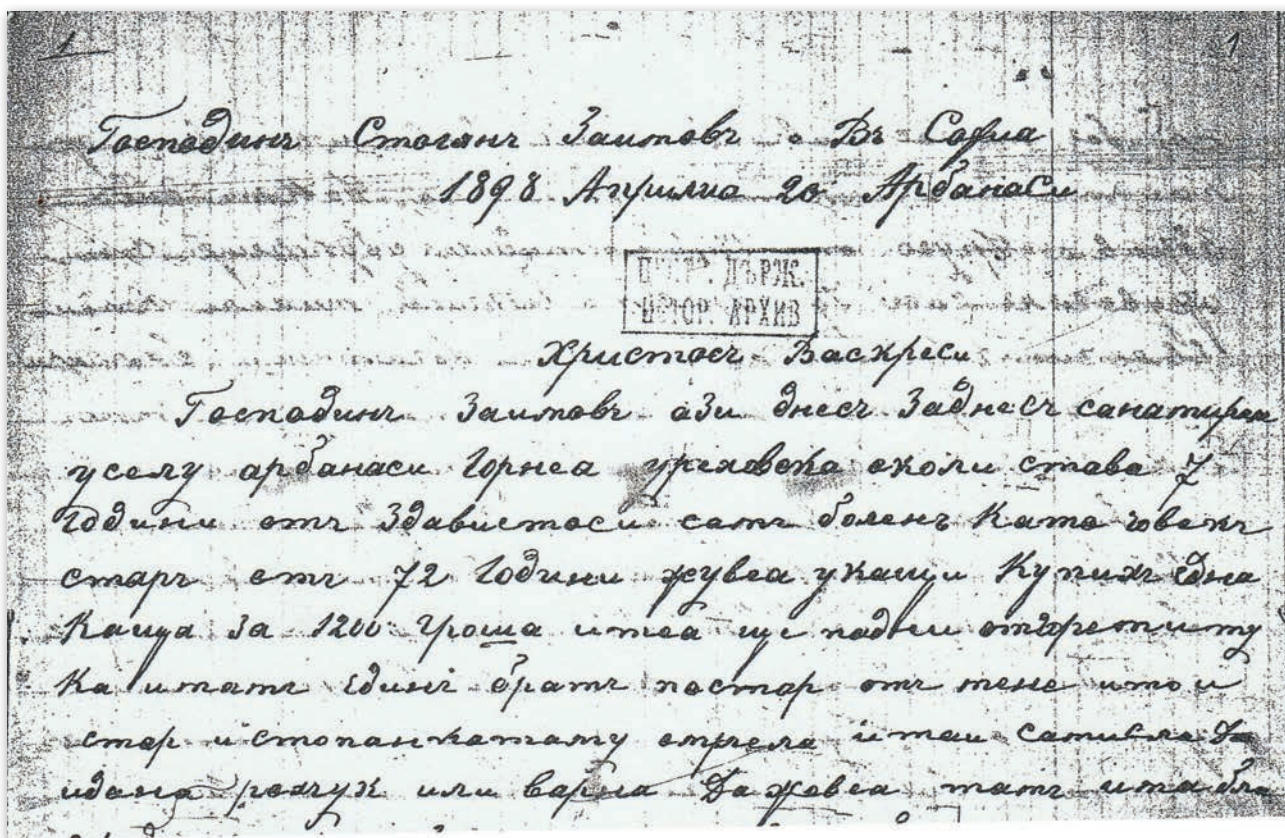 1 1
Господинъ Стоянъ Заимовъ. Въ София
1898 Априлиа 20 Арбанаси
ЦЕНТР. ДЪРЖ.
ИСТОР. АРХИВ
Христосъ Васкреси
Господинъ Заимовъ ази днесъ Заднесъ санамирам
уселу арбанаси Горнеауреховска околи става 7
Години отъ Здавистоси самъ боленъ Като човекъ
старъ отъ 72 Години жувеа укащи Купихъ Една
Каща За 1200 Гроша итеа ще падни
Ка иматъ Единъ братъ постар отъ мене итои
стар истопанкатаму умрела итаи
идема русчук или варна Да живеа тамъ